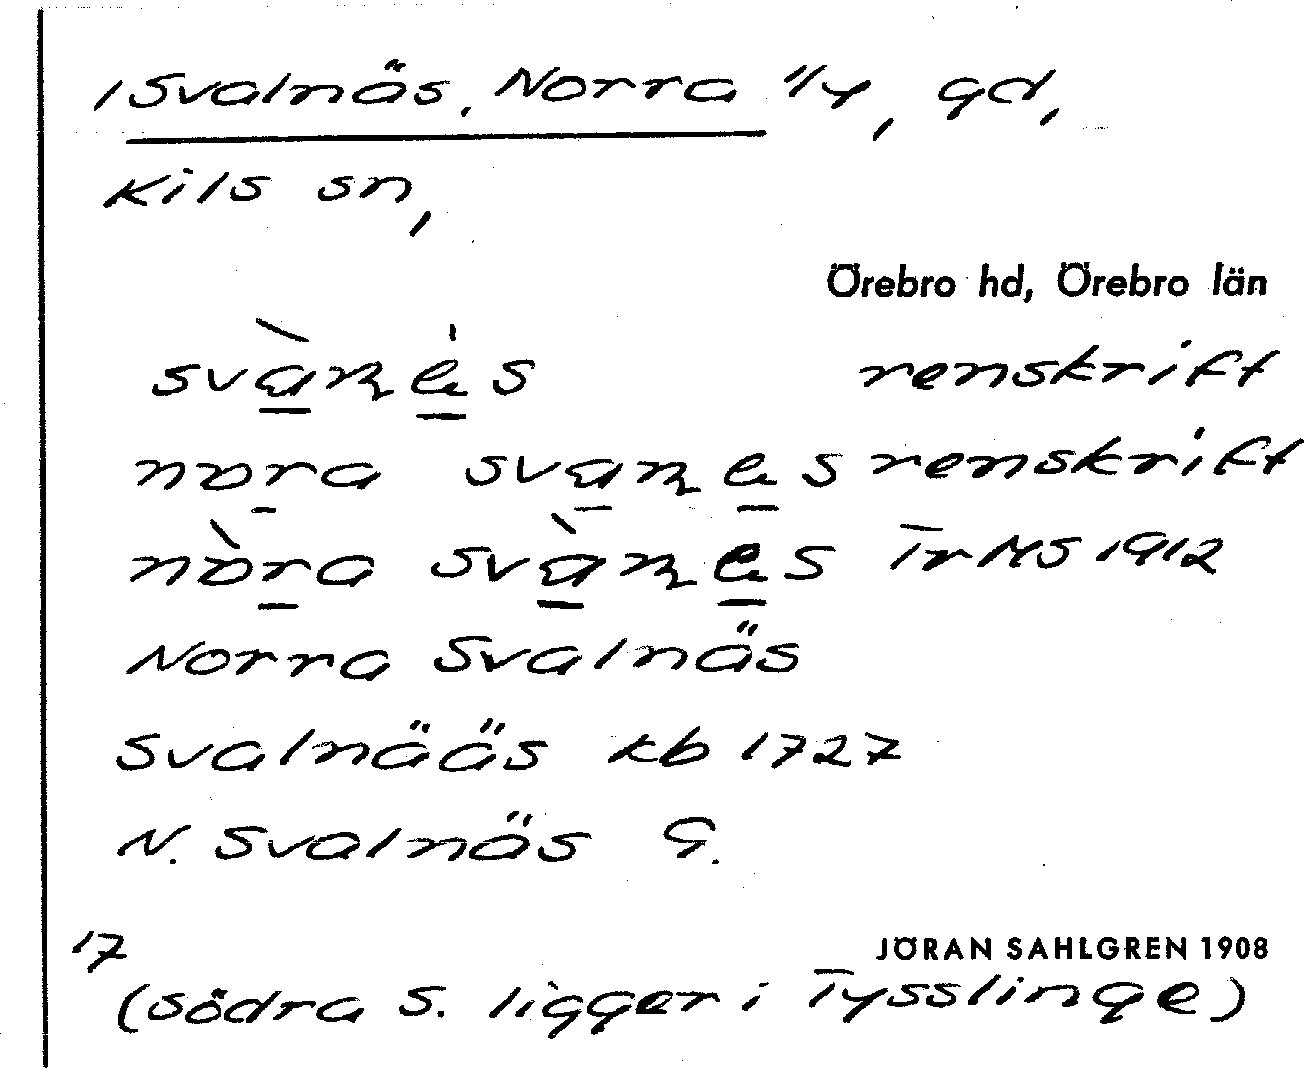 1 Svalnäs, Norra 1/4, gd,
Kils sn,
Örebro hd, Örebro län
svàṉe̱s renskrift
nora svanes renskrift
nòra svànes TrMS 1912
Norra Svalnäs
Svalnääs kb 1727
N. Svalnäs G.
17
JÖRAN SAHLGREN 1908
(södra S. ligger i Tysslinge)